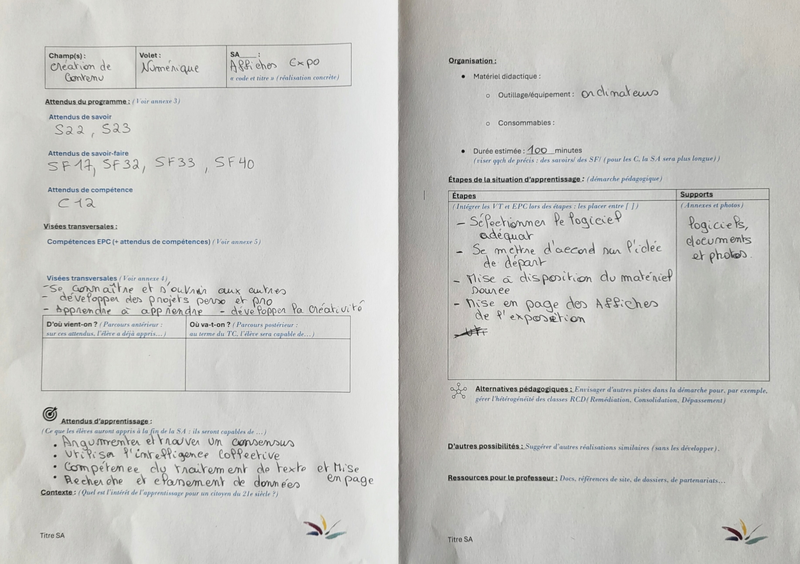 Champ(s) :
Création de
Contenu
Volet :
Numérique
SA____ :
Affiches Expo
« code et titre » (réalisation concrète)
Attendus du programme : (Voir annexe 3)
Attendus de savoir
S22, S23
Attendus de savoir-faire
SF17, SF32, SF33, SF40
Attendus de compétence
C12
Visées transversales :
Compétences EPC (+ attendus de compétences) (Voir annexe 5)
Visées transversales (Voir annexe 4)
- Se connaître et s'ouvrir aux autres
- développer des projets perso et pro
- Apprendre à apprendre - développer la créativité
D'où vient-on ? (Parcours antérieur :
sur ces attendus, l'élève a déjà appris…)
Où va-t-on ? (Parcours postérieur :
au terme du TC, l'élève sera capable de…)
Attendus d'apprentissage :
(Ce que les élèves auront appris à la fin de la SA : ils seront capables de …)
• Argumenter et trouver un consensus
• Utiliser l'intelligence collective
• Compétence du traitement de texte et Mise
en page
• Recherche et classement de données
Contexte : (Quel est l'intérêt de l'apprentissage pour un citoyen du 21e siècle ?)
Titre SA
Organisation :
• Matériel didactique :
o Outillage/équipement : ordinateurs
o Consommables :
• Durée estimée : 100 minutes
(viser qqch de précis : des savoirs/ des SF/ (pour les C, la SA sera plus longue))
Étapes de la situation d'apprentissage : (démarche pédagogique)
Étapes
(Intégrer les VT et EPC lors des étapes : les placer entre [ ])
- Sélectionner le logiciel
adéquat
- Se mettre d'accord sur l'idée
de départ
- Mise à disposition du matériel
source
- Mise en page des Affiches
de l'exposition
Supports
(Annexes et photos)
logiciels,
documents
et photos.
Alternatives pédagogiques : Envisager d'autres pistes dans la démarche pour, par exemple,
gérer l'hétérogénéité des classes RCD( Remédiation, Consolidation, Dépassement)
D'autres possibilités : Suggérer d'autres réalisations similaires (sans les développer).
Ressources pour le professeur : Docs, références de site, de dossiers, de partenariats…
Titre SA